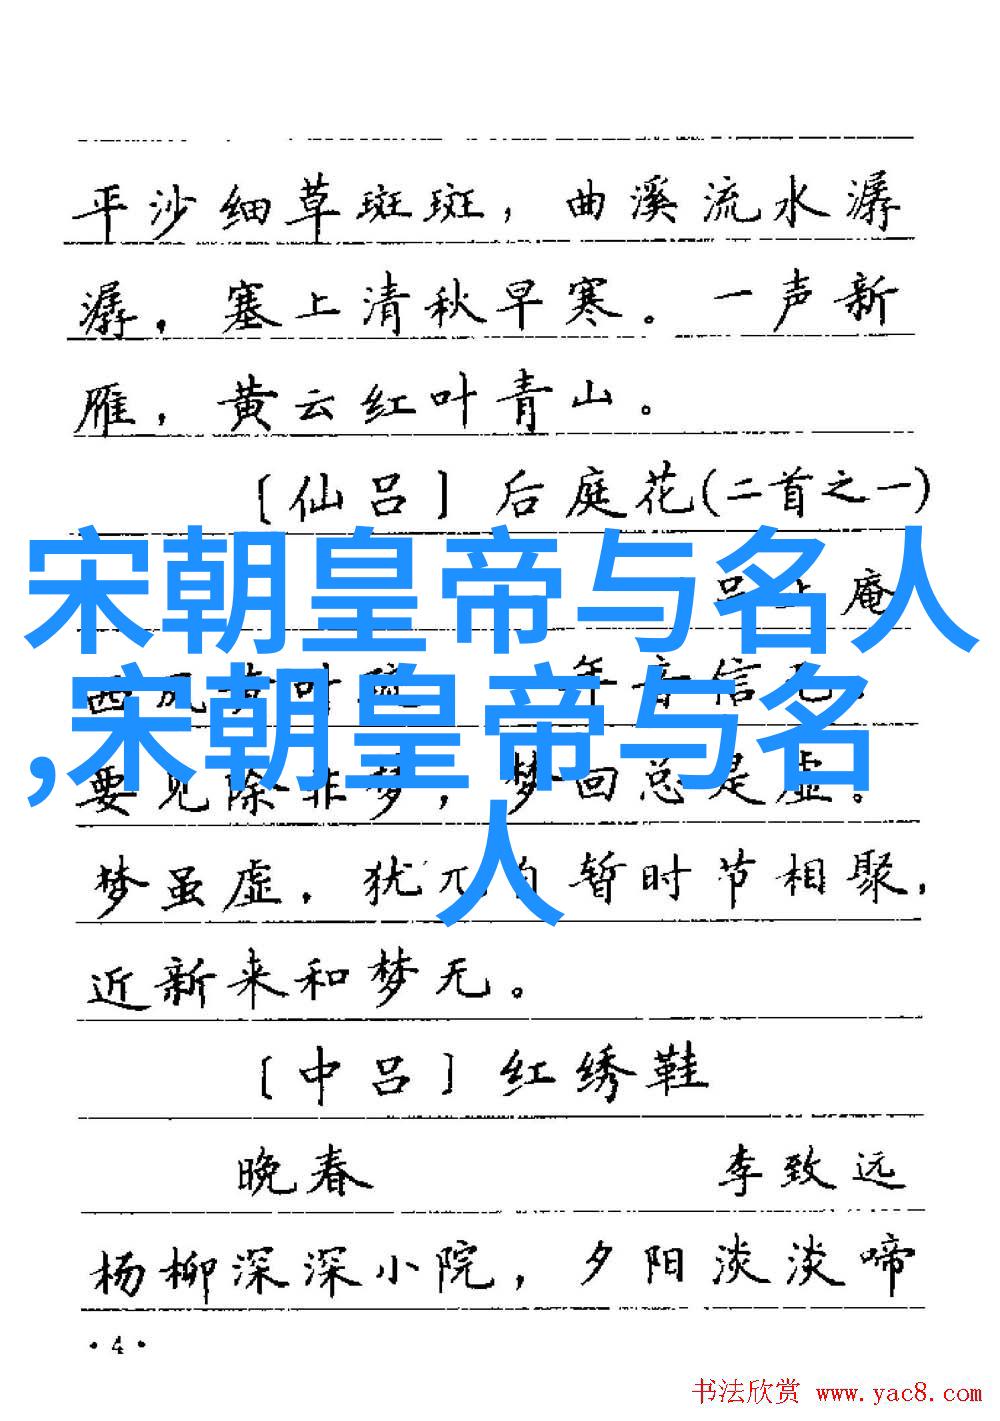 平沙细草斑斑，曲溪流水潺
潺，塞上清秋早寒。一声新
雁，黄云红叶青山。
〔仙吕〕后庭花(二首之一)
宋朝皇帝与名人
吕止庵
西风黄叶疏 年音信无。
,宋朝皇帝与名
要见除非梦，梦回总是虚。
人
梦虽虚，犹兀自暂时节相聚，
近新来和梦无。
〔中吕〕红绣鞋
晚春 李致远
杨柳深深小院，夕阳淡淡啼
·4·
书法欣赏 www.yac8.com